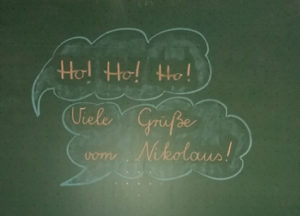 Ho! Ho! Ho!
Viele Grüße
vom Nikolaus!